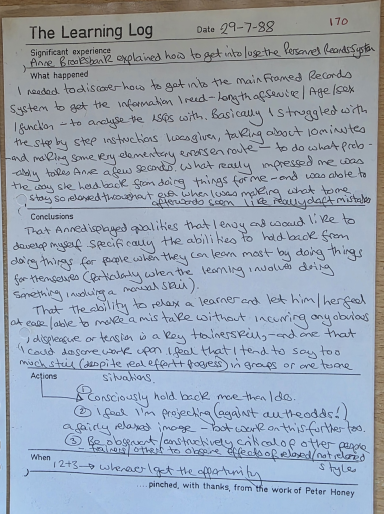 The Learning Log Date 29-7-88 170
Significant experience
Anne Brooksbank explained how to get into/use the Personnel Records System
What happened
I needed to discover how to get into the main framed Records
System to get the information I need - length of service / Age/sex
/function - to analyse the LSQs with. Basically I struggled with
the step by step instructions I was given, taking about 10 minutes
- and making some very elementary errors en route - to do what prob-
ably takes Anne a few seconds. What really impressed me was
the way she held back from doing things for me - and was able to
stay so relaxed throughout even when I was making what to me
afterwards seem like really daft mistakes
Conclusions
That Anne displayed qualities that I envy and would like to
develop myself. Specifically the abilities to hold back from
doing things for people when they can learn most by doing things
for themselves (particularly when the learning involves doing
something involving a manual skill).
That the ability to relax a learner and let him/her feel
at ease/able to make a mistake without incurring any obvious
displeasure or tension is a key trainer skill, - and one that
I could do some work upon. I feel that I tend to say too
much still (despite real effort & progress) in groups or one to one
situations.
Actions
① Consciously hold back more than I do.
② I feel I'm projecting (against all the odds!)
a fairly relaxed image - but work on this further too.
③ Be observant/constructively critical of other people
- trainers/others to observe effects of relaxed/not relaxed
styles
When
1 2 + 3 → whenever I get the opportunity
....pinched, with thanks, from the work of Peter Honey